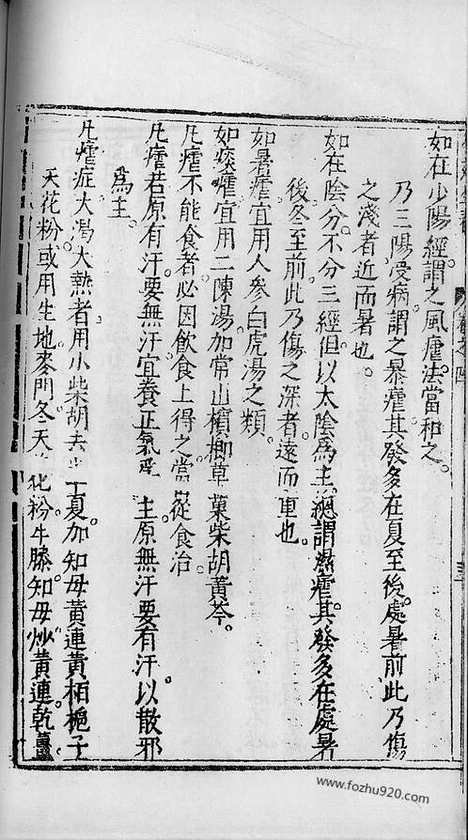 如在少陽經謂之風瘧法當和之
乃三陽受病謂之暴瘧其發多在夏至後處暑前此乃傷
之淺者近而暑也
如在陰分不分三經但以太陰為主總謂濕瘧其發多在處暑
後冬至前此乃傷之深者遠而重也
如暑瘧宜用人參白虎湯之類
如痰瘧宜用二陳湯加常山檳榔草菓柴胡黃芩
凡瘧不能食者必因飲食上得之當從食治
凡瘧若原有汗要無汗宜養正氣為主原無汗要有汗以散邪
為主
凡瘧症大渴大熱者用小柴胡去半夏加知母黃連黃栢梔子
天花粉或用生地麥門冬天花粉牛膝知母炒黃連乾薑
www.fozhu920.com